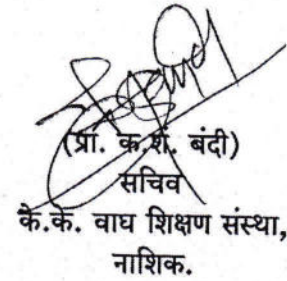 (प्रा. क.शं. बंदी)
सचिव
के.के. वाघ शिक्षण संस्था,
नाशिक.